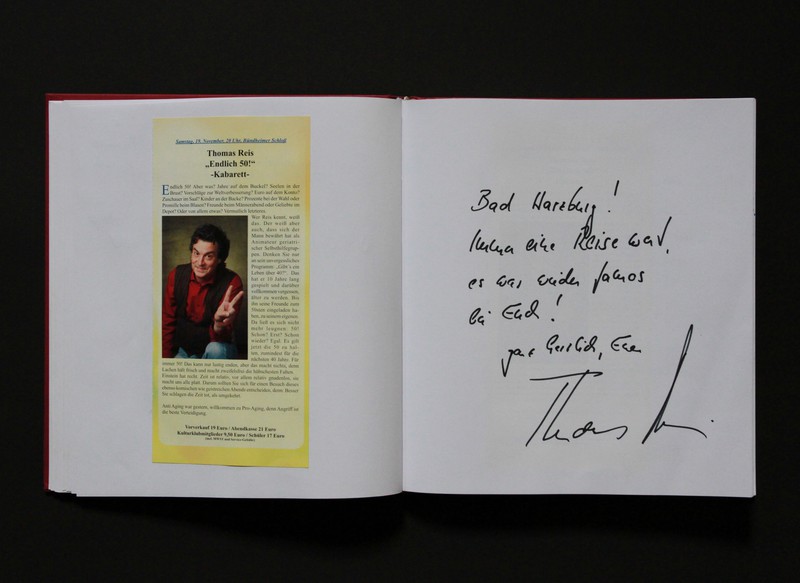 Samstag, 19. November, 20 Uhr, Bündheimer Schloß
Thomas Reis
„Endlich 50!“
-Kabarett-
Endlich 50! Aber was? Jahre auf dem Buckel? Seelen in der
Brust? Vorschläge zur Weltverbesserung? Euro auf dem Konto?
Zuschauer im Saal? Kinder an der Backe? Prozente bei der Wahl oder
Promille beim Blasen? Freunde beim Männerabend oder Geliebte im
Depot? Oder von allem etwas? Vermutlich letzteres.
Wer Reis kennt, weiß
das. Der weiß aber
auch, dass sich der
Mann bewährt hat als
Animateur geriatri-
scher Selbsthilfegrup-
pen. Denken Sie nur
an sein unvergessliches
Programm: „Gibt’s ein
Leben über 40?“. Das
hat er 10 Jahre lang
gespielt und darüber
vollkommen vergessen,
älter zu werden. Bis
ihn seine Freunde zum
50sten eingeladen ha-
ben, zu seinem eigenen.
Da ließ es sich nicht
mehr leugnen. 50!
Schon? Erst? Schon
wieder? Egal. Es gilt
jetzt die 50 zu hal-
ten, zumindest für die
nächsten 40 Jahre. Für
immer 50! Das kann nur lustig enden, aber das macht nichts, denn
Lachen hält frisch und macht zweifelsfrei die hübschesten Falten.
Einstein hat recht. Zeit ist relativ, vor allem relativ gnadenlos, sie
macht uns alle platt. Darum sollten Sie sich für einen Besuch dieses
ebenso komischen wie geistreichen Abends entscheiden, denn: Besser
Sie schlagen die Zeit tot, als umgekehrt.
Anti Aging war gestern, willkommen zu Pro-Aging, denn Angriff ist
die beste Verteidigung.
Vorverkauf 19 Euro / Abendkasse 21 Euro
Kulturklubmitglieder 9,50 Euro / Schüler 17 Euro
(inkl. MWST und Service-Gebühr)
Bad Harzburg!
Immer eine Reise wert,
es war wieder famos
bei Euch!
ganz herzlich, Euer
Thomas Reis